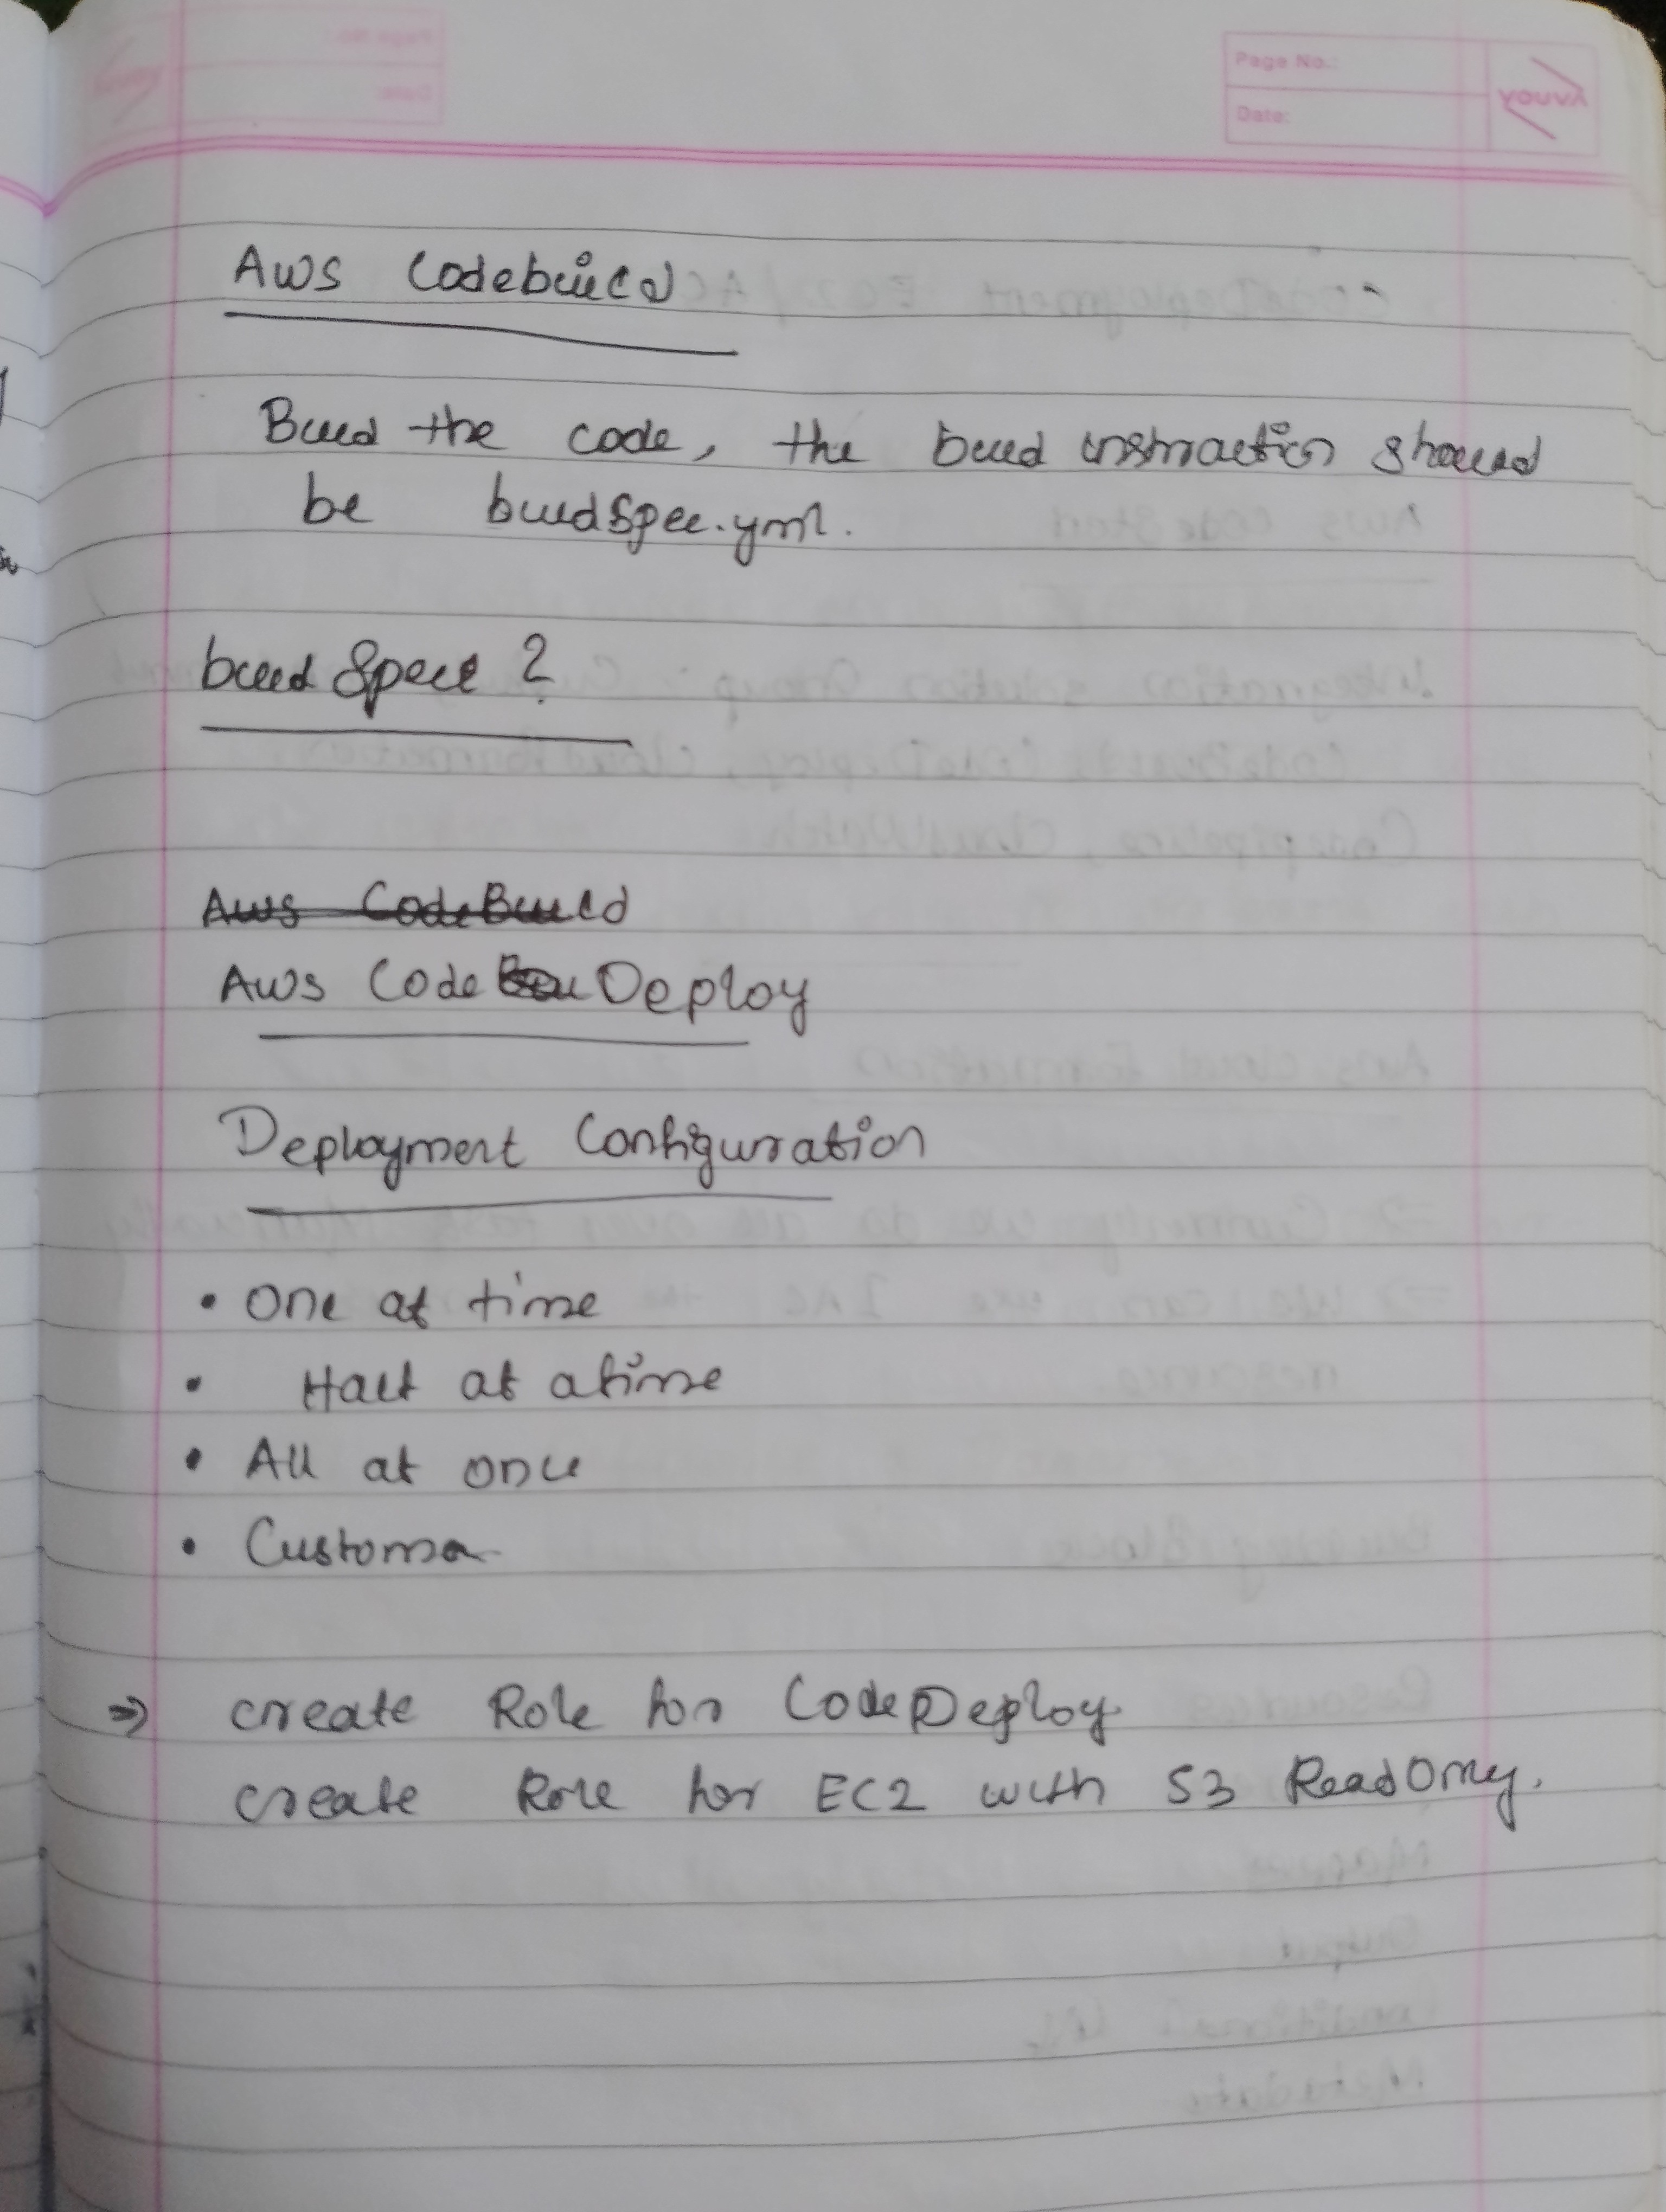 Page No.:
Date:
Youva
Aws Codebuild
Build the code, the build instruction should
be buildspec.yml.
build Spec ?
Aws CodeBuild
Aws Code Deploy
Deployment Configuration
• One at time
• Half at a time
• All at once
• Custom
⇒ create Role for CodeDeploy.
create Role for EC2 with S3 ReadOnly.